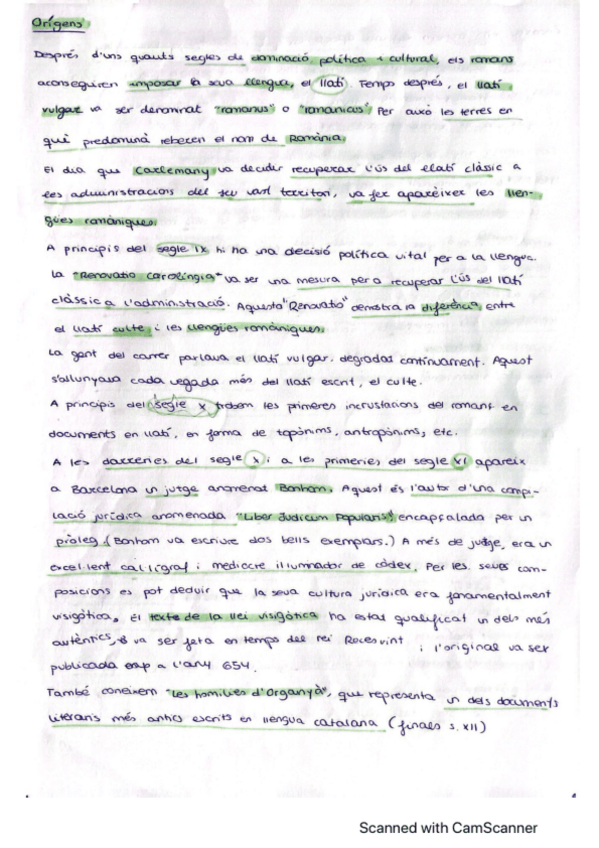 Orígens
Després d'uns quants segles de dominació política i cultural, els romans
aconseguiren imposar la seva llengua, el llatí. Temps després, el llatí
vulgar va ser denominat "romanus" o "romanicus". Per això les terres en
què predominà reberen el nom de Romània.
El dia que Carlemany va decidir recuperar l'ús del llatí clàssic a
les administracions del seu vast territori, va fer aparèixer les llen-
gües romàniques.
A principis del segle IX hi ha una decisió política vital per a la llengua.
La "Renovatio Carolíngia" va ser una mesura per a recuperar l'ús del llatí
clàssic a l'administració. Aquesta "Renovatio" demostra la diferència entre
el llatí culte i les llengües romàniques.
La gent del carrer parlava el llatí vulgar, degradas contínuament. Aquest
s'allunyava cada vegada més del llatí escrit, el culte.
A principis del segle X trobem les primeres incrustacions del romanç en
documents en llatí, en forma de topònims, antropònims, etc.
A les darreries del segle X i a les primeries del segle XI apareix
a Barcelona un jutge anomenat Bonhom. Aquest és l'autor d'una compi-
lació jurídica anomenada "Liber Judicum Popularis", encapçalada per un
pròleg. (Bonhom va escriure dos bells exemplars.) A més de jutge, era un
excel·lent cal·lígraf i mediocre il·luminador de còdex. Per les seves com-
posicions es pot deduir que la seva cultura jurídica era fonamentalment
visigòtica. El texte de la llei visigòtica ha estat qualificat un dels més
autèntics, va ser feta en temps del rei Recesvint i l'original va ser
publicada cap a l'any 654.
També coneixem "Les homilies d'Organyà", que representa un dels documents
literaris més antics escrits en llengua catalana (finals s. XII)
Scanned with CamScanner